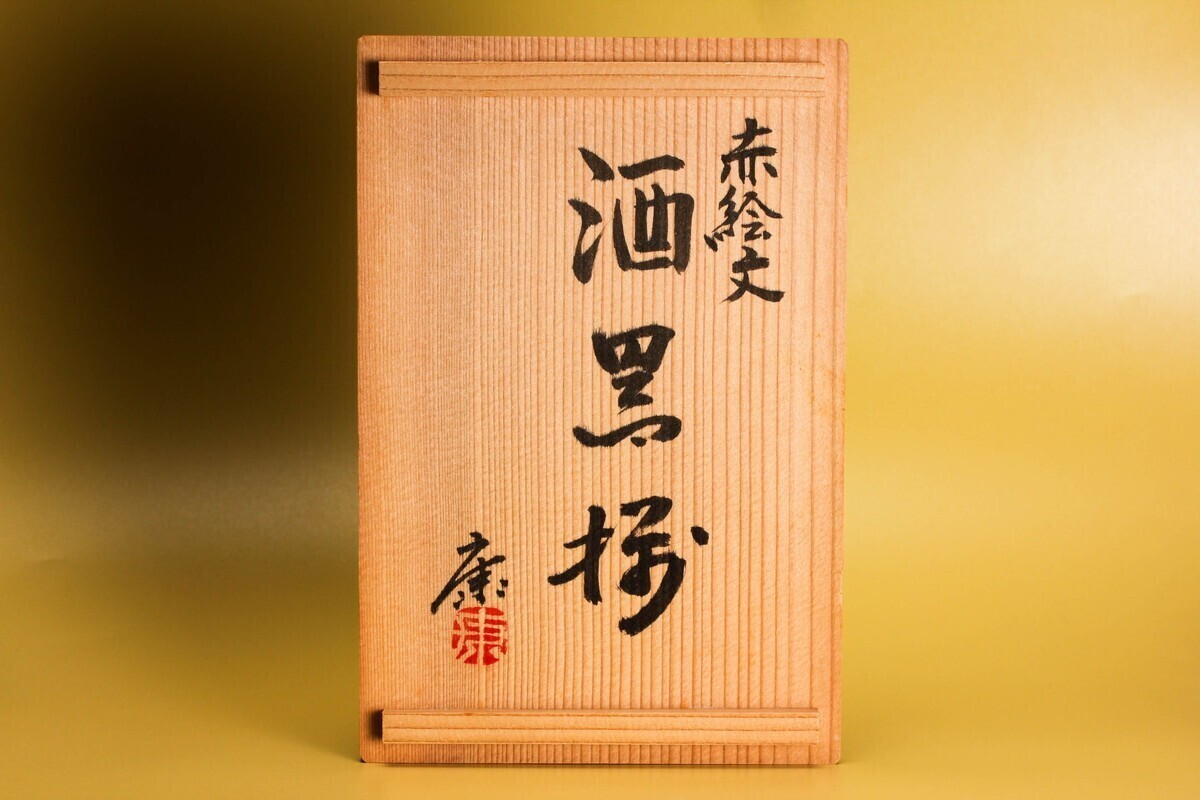 赤絵文
酒器揃
康
康